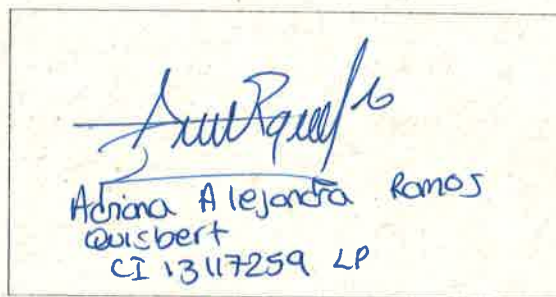 Adriana Alejandra Ramos
Quisbert
CI 13117259 LP